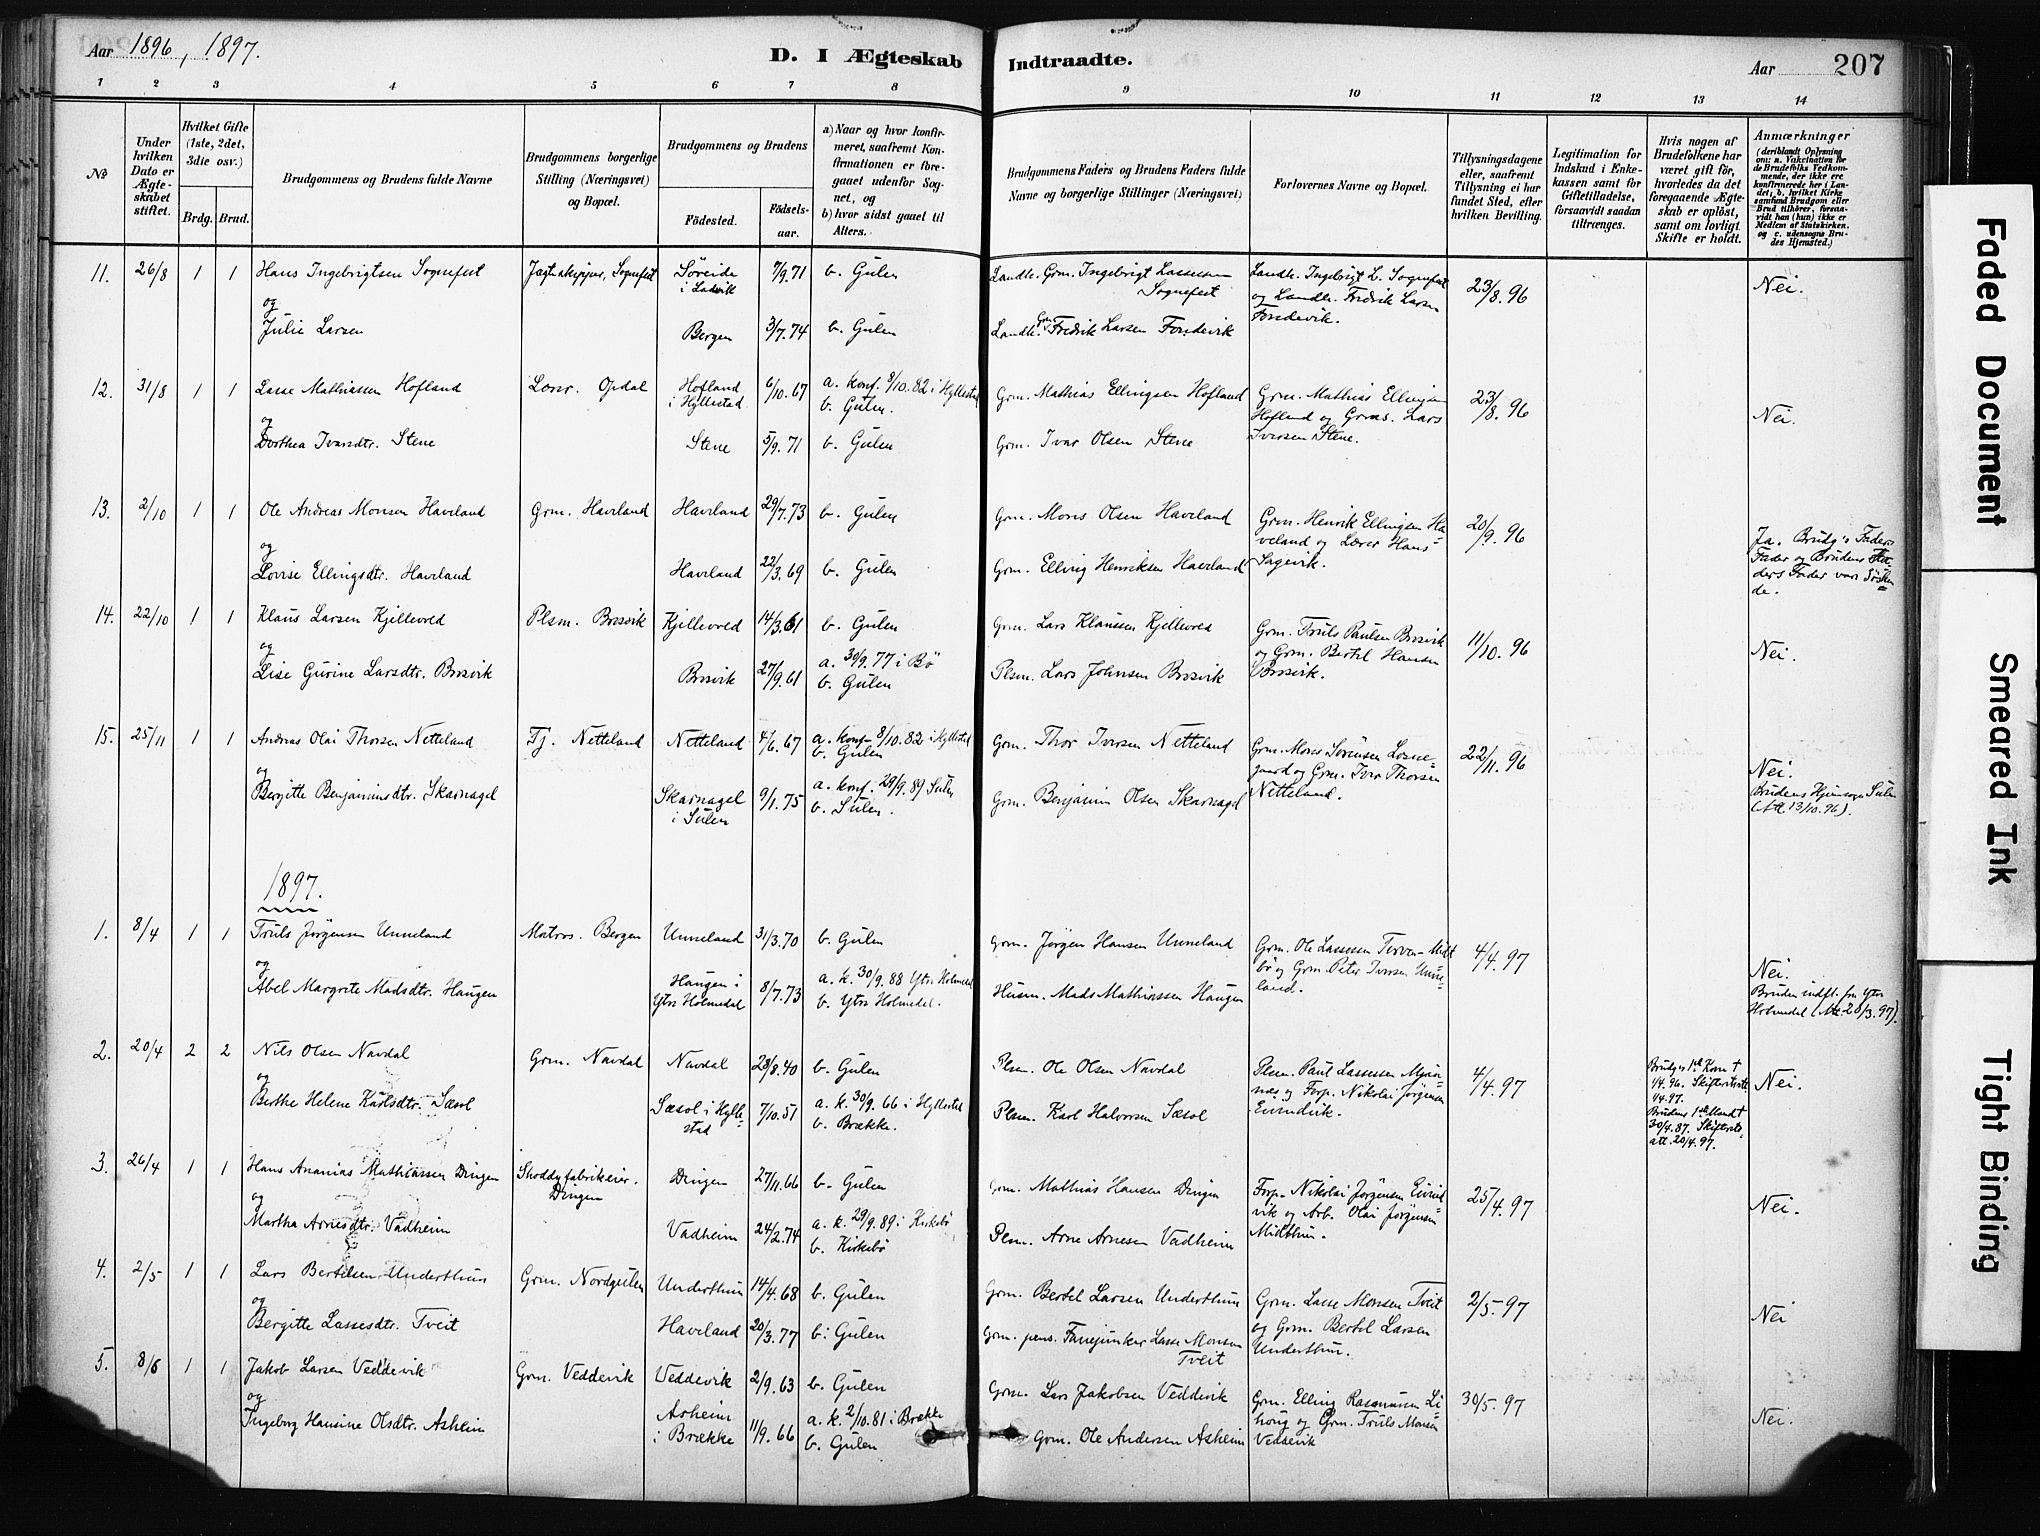 Aar 1896, 1897.
D. I Ægteskab Indtraadte.
Aar 207
1 2 3 4 5 6 7 8 9 10 11 12 13 14
№
Under hvilken Dato er Ægteskabet stiftet.
Hvilket Gifte (1ste, 2det, 3die osv.)
Brdg. Brud.
Brudgommens og Brudens fulde Navne
Brudgommens borgerlige Stilling (Næringsvei) og Bopæl.
Brudgommens og Brudens
Födested. Födsels-aar.
a) Naar og hvor konfirmeret, saafremt Konfirmationen er foregaaet udenfor Sognet, og
b) hvor sidst gaaet til Alters.
Brudgommens Faders og Brudens Faders fulde Navne og borgerlige Stillinger (Næringsvei)
Forlovernes Navne og Bopæl.
Tillysningsdagene eller, saafremt Tillysning ei har fundet Sted, efter hvilken Bevilling.
Legitimation for Indskud i Enkekassen samt for Giftetilladelse, forsaavidt saadan tiltrænges.
Hvis nogen af Brudefolkene har været gift før, hvorledes da det foregaaende Ægteskab er oplöst, samt om lovligt Skifte er holdt.
Anmærkninger
(deriblandt Oplysning om: a. Vakcination for de Brudefolks Vedkommende, der ikke ere konfirmerede her i Landet; b. hvilket Kirkesamfund Brudgom eller Brud tilhörer, forsaavidt han (hun) ikke er Medlem af Statskirken, og c. udensogns Brudes Hjemsted.)
11. 26/8 1 1 Hans Ingebrigtsen Sognefest Jagtskipper, Sognefest Søreide i Ladvik 7/9.71 b. Gulen Landh. Grm. Ingebrigt Lassesen Sognefest Landh. Ingebrigt L. Sognefest og Landh. Fredrik Larsen Fondevik. 23/8.96 Nei.
og
Julie Larsen Bergen 3/7.74 b. Gulen Landh. Grm. Fredrik Larsen Fondevik
12. 31/8 1 1 Lasse Mathiassen Hofland Opdal Hofland i Hyllestad 6/10.67 a. konf. 8/10.82 i Hyllestad b. Gulen. Grm. Mathias Ellingsen Hofland Grm. Mathias Ellingsen Hofland og Grms. Lars Iversen Stene. 23/8.96 Nei.
og
Dorthea Ivarsdtr. Stene Stene 5/9.71 b. Gulen Grm. Ivar Olsen Stene
13. 2/10 1 1 Ole Andreas Monsen Haveland Grm. Haveland Haveland 29/7.73 b. Gulen Grm. Mons Olsen Haveland Grm. Henrik Ellingsen Haveland og Lærer Hans Sagevik. 20/9.96 Ja. Brudg's Faders Fader og Brudens Faders Fader var Søskende.
og
Lovise Ellingsdtr. Haveland Haveland 22/3.69 b. Gulen Grm. Elling Henriksen Haveland
14. 22/10 1 1 Klaus Larsen Kjellevod Plsm. Brosvik Kjellevod 14/3.61 b. Gulen Grm. Lars Klaussen Kjellevod Grm. Truls Paulsen Brosvik og Grm. Bertel Hansen Brosvik. 11/10.96 Nei.
og
Lise Gurine Larsdtr. Brosvik Brosvik 27/9.61 a. 30/9.77 i Bö b. Gulen Plsm. Lars Johnsen Brosvik
15. 25/11 1 1 Andreas Olai Thorsen Netteland Tj. Netteland Netteland 4/6.67 a. konf. 8/10.82 i Hyllestad b. Gulen Grm. Thor Iversen Netteland Grm. Mons Sørensen Losnegaard og Grm. Iver Thorsen Netteland. 22/11.96 Nei.
og
Bergitte Benjaminsdtr. Skarnagel Skarnagel i Sulen 9/1.75 a. konf. 29/9.89 Sulen b. Sulen. Grm. Benjamin Olsen Skarnagel Brudens Hjemsogn Sulen (Att. 13/10.96).
1897.
1. 8/4 1 1 Truls Jørgensen Unneland Matros. Bergen Unneland 31/3.70 b. Gulen Grm. Jørgen Hansen Unneland Grm. Ole Lassesen Midtbö og Grm. Peter Iversen Unneland. 4/4.97 Nei.
og
Abel Margrete Madsdtr. Haugen Haugen i Ytre Holmedal 8/7.73 a. k. 30/9.88 Ytre Holmedal b. Ytre Holmedal. Husm. Mads Mathiassen Haugen Bruden indfl. fra Ytre Holmedal (Att. 20/3.97).
2. 20/4 2 2 Nils Olsen Navdal Grm. Navdal Navdal 28/8.40 b. Gulen Plsm. Ole Olsen Navdal Plsm. Paul Lassesen og Forp. Nikolai Jørgensen Eivindvik. 4/4.97 Brudg's 1ste Kone † 1/4.96. 1/4.97. Brudens 1ste Mand † 30/4.87. att. 20/4.97. Nei.
og
Berthe Helene Karlsdtr. Sæsol Sæsol i Hyllestad 7/10.51 a. k. 30/9.66 i Hyllestad b. Brække. Plsm. Karl Halvorsen Sæsol
3. 26/4 1 1 Hans Ananias Mathiassen Dingen Shoddyfabrikeier. Dingen Dingen 27/11.66 b. Gulen Grm. Mathias Hansen Dingen Forp. Nikolai Jørgensen Eivindvik og Arb. Olai Jørgensen Midthun. 25/4.97 Nei.
og
Martha Arnesdtr. Vadheim Vadheim 24/2.74 a. k. 29/9.89 i Kirkebö b. Kirkebö Plsm. Arne Arnesen Vadheim
4. 2/5 1 1 Lars Bertelsen Underthun Grm. Nordgulen Underthun 14/4.68 b. Gulen Grm. Bertel Larsen Underthun Grm. Lasse Monsen Tveit og Grm. Bertel Larsen Underthun. 2/5.97 Nei
og
Bergitte Lassesdtr. Tveit Haveland 20/3.77 b. Gulen Grm. pens. Fanejunker Lasse Monsen Tveit
5. 8/6 1 1 Jakob Larsen Veddevik Grm. Veddevik Veddevik 2/9.63 b. Gulen Grm. Lars Jakobsen Veddevik Grm. Elling Rasmussen Lihoug og Grm. Truls Monsen Veddevik 30/5.97 Nei.
og
Ingeborg Hansine Olsdtr. Asheim Asheim i Brække 11/9.66 a. k. 2/10.81 i Brække b. Gulen Grm. Ole Andersen Asheim
Faded Document
Smeared Ink
Tight Binding